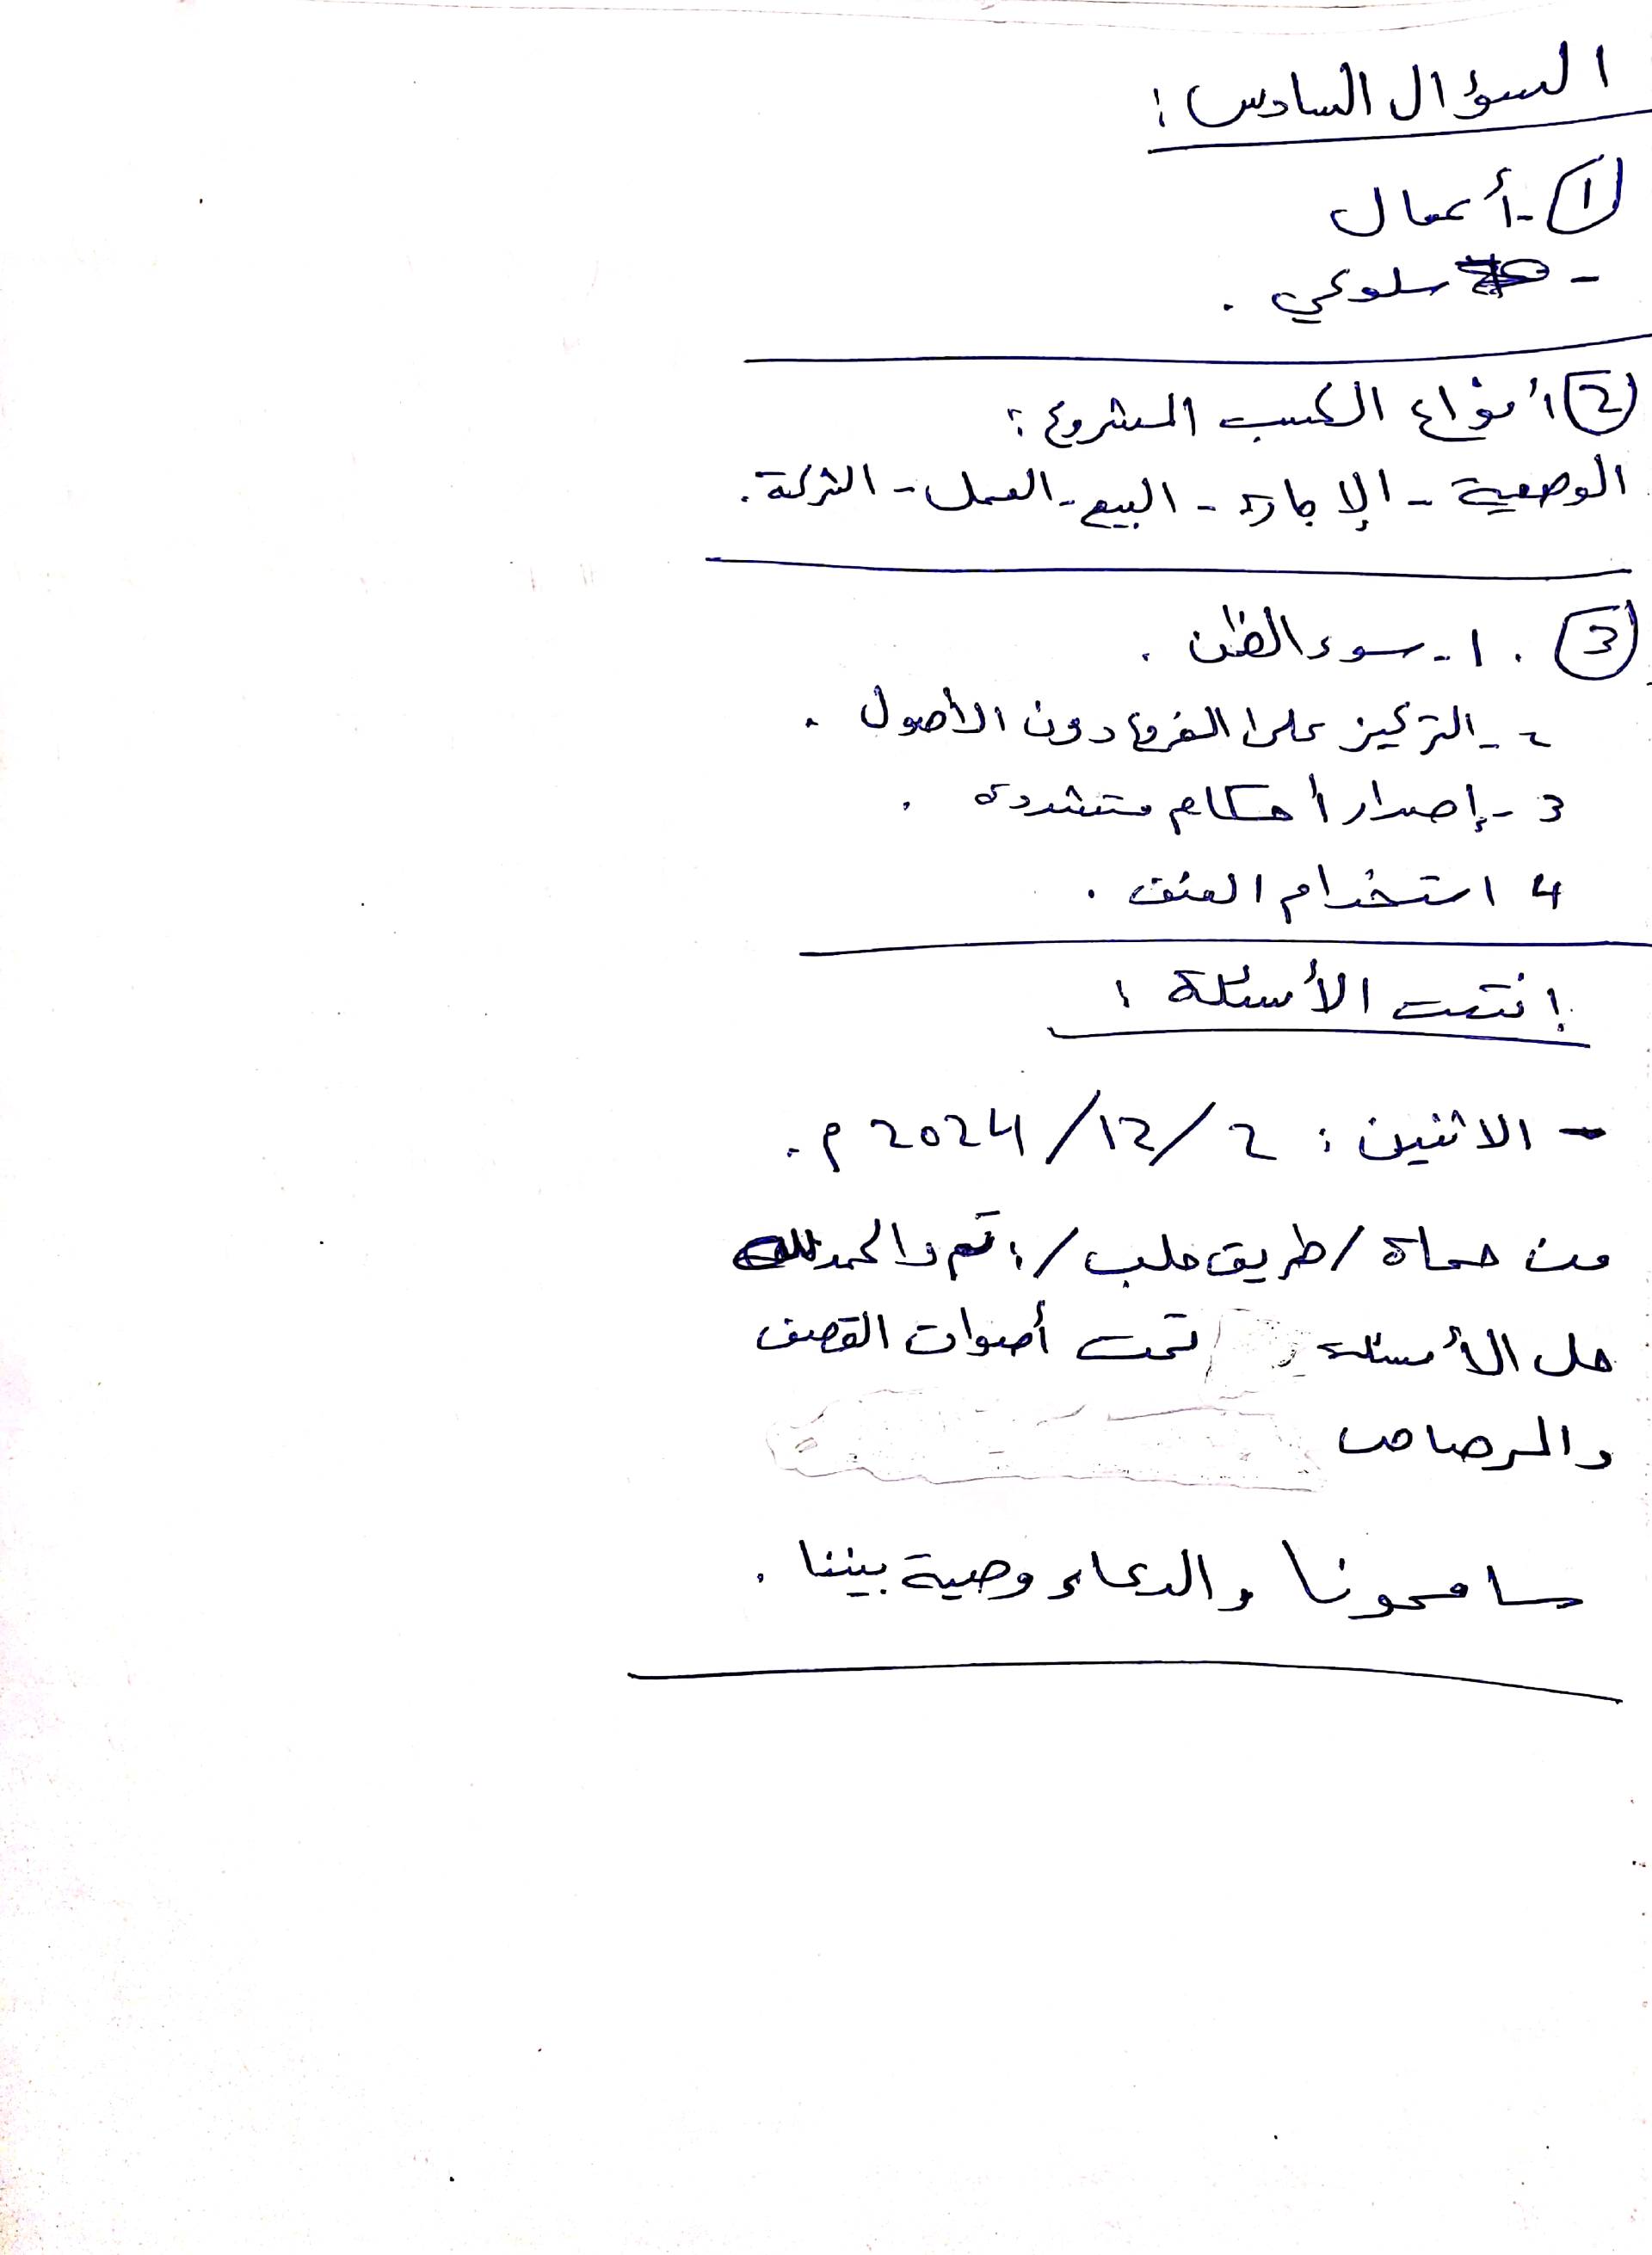 السؤال السادس :
① - أعمال
- سلوكي .
② أنواع الكسب المشروع :
الوصية - الإجارة - البيع - العمل - الشركة .
③ . 1 - سوء الظن .
2 - التركيز على الفروع دون الأصول .
3 - إصدار أحكام متشددة .
4 استخدام العنف .
انتهت الأسئلة :
- الاثنين : 2 / 12 / 2024 م .
من حماة / طريق حلب / ؛ تم والحمد لله
حل الأسئلة تحت أصوات القصف
والرصاص
سامحونا والدعاء وصية بيننا .